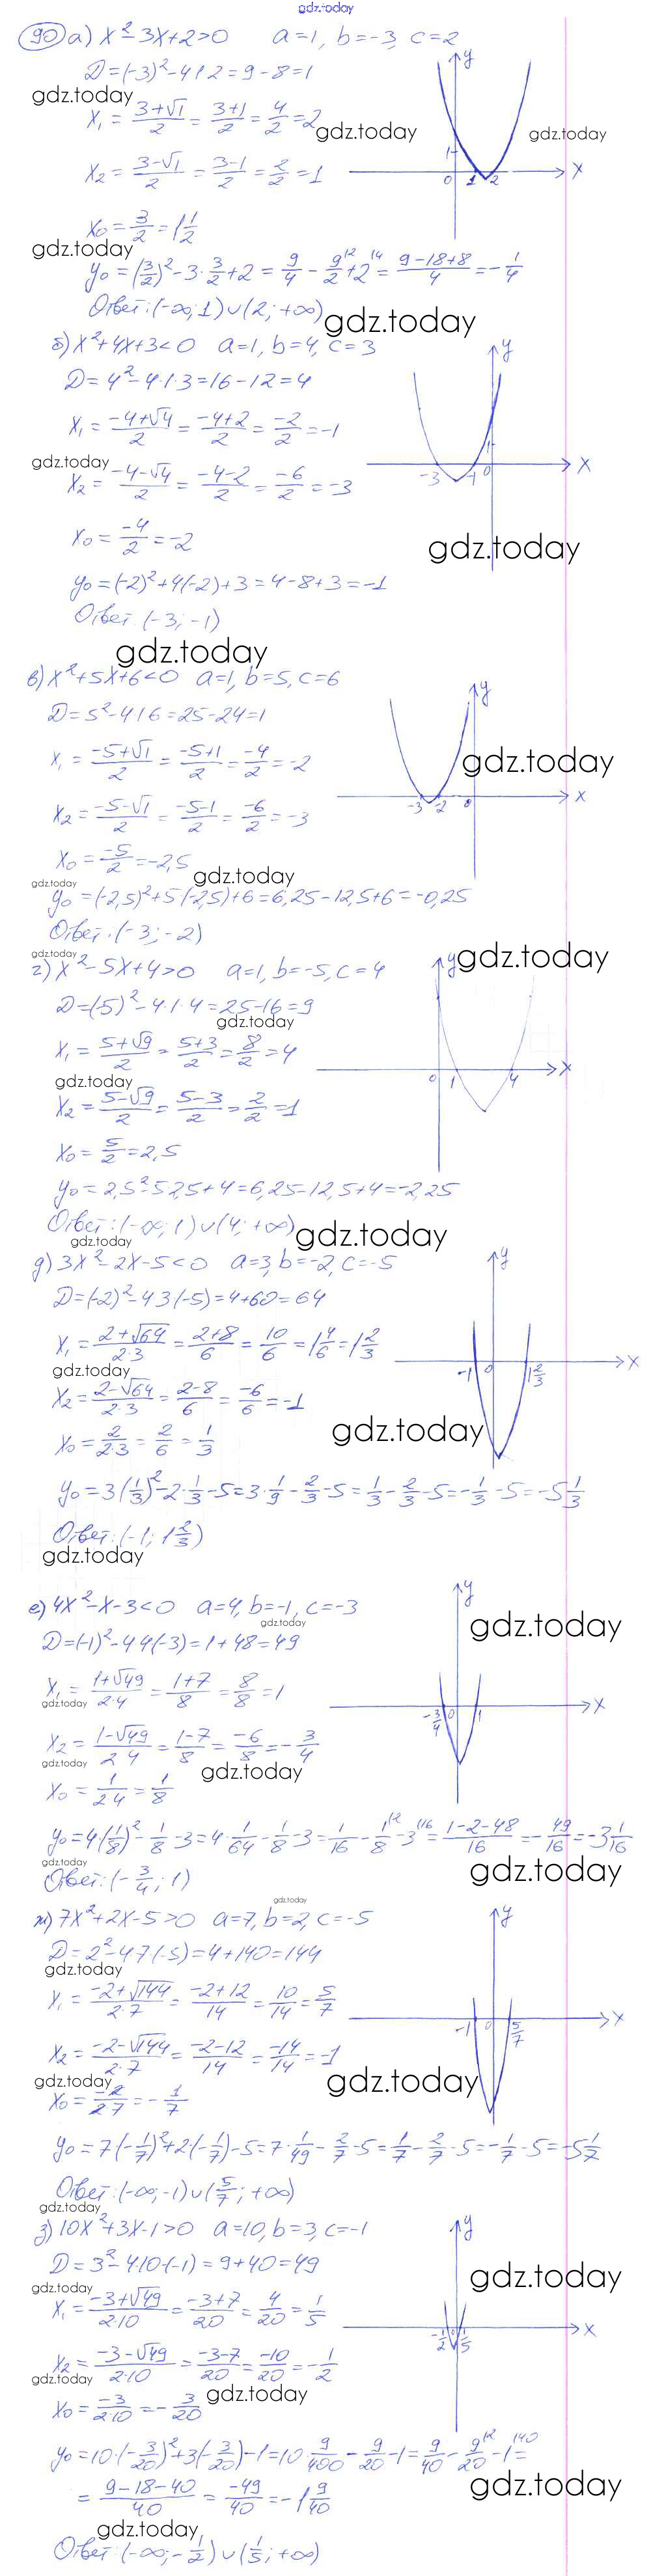 gdz.today
90 а) x² - 3x + 2 > 0 a = 1, b = -3, c = 2
D = (-3)² - 4·1·2 = 9 - 8 = 1
gdz.today
x₁ = (3+√1)/2 = (3+1)/2 = 4/2 = 2
gdz.today
gdz.today
x₂ = (3-√1)/2 = (3-1)/2 = 2/2 = 1
x₀ = 3/2 = 1 1/2
gdz.today
y₀ = (3/2)² - 3·3/2 + 2 = 9/4 - 9/2 + 2 = (9-18+8)/4 = -1/4
Ответ: (-∞; 1) ∪ (2; +∞)
gdz.today
y
1
0 1 2
x
б) x² + 4x + 3 < 0 a = 1, b = 4, c = 3
D = 4² - 4·1·3 = 16 - 12 = 4
x₁ = (-4+√4)/2 = (-4+2)/2 = -2/2 = -1
gdz.today
x₂ = (-4-√4)/2 = (-4-2)/2 = -6/2 = -3
x₀ = -4/2 = -2
gdz.today
y₀ = (-2)² + 4(-2) + 3 = 4 - 8 + 3 = -1
Ответ: (-3; -1)
gdz.today
y
1
-3 -1 0
x
в) x² + 5x + 6 < 0 a = 1, b = 5, c = 6
D = 5² - 4·1·6 = 25 - 24 = 1
x₁ = (-5+√1)/2 = (-5+1)/2 = -4/2 = -2
gdz.today
x₂ = (-5-√1)/2 = (-5-1)/2 = -6/2 = -3
x₀ = -5/2 = -2,5
gdz.today
gdz.today
y₀ = (-2,5)² + 5(-2,5) + 6 = 6,25 - 12,5 + 6 = -0,25
Ответ: (-3; -2)
y
-3 -2 0
x
gdz.today
gdz.today
г) x² - 5x + 4 > 0 a = 1, b = -5, c = 4
D = (-5)² - 4·1·4 = 25 - 16 = 9
gdz.today
x₁ = (5+√9)/2 = (5+3)/2 = 8/2 = 4
gdz.today
x₂ = (5-√9)/2 = (5-3)/2 = 2/2 = 1
x₀ = 5/2 = 2,5
y₀ = 2,5² - 5·2,5 + 4 = 6,25 - 12,5 + 4 = -2,25
Ответ: (-∞; 1) ∪ (4; +∞)
gdz.today
gdz.today
y
0 1 4
x
д) 3x² - 2x - 5 < 0 a = 3, b = -2, c = -5
D = (-2)² - 4·3·(-5) = 4 + 60 = 64
x₁ = (2+√64)/(2·3) = (2+8)/6 = 10/6 = 1 4/6 = 1 2/3
gdz.today
x₂ = (2-√64)/(2·3) = (2-8)/6 = -6/6 = -1
gdz.today
x₀ = 2/(2·3) = 2/6 = 1/3
y₀ = 3(1/3)² - 2·1/3 - 5 = 3·1/9 - 2/3 - 5 = 1/3 - 2/3 - 5 = -1/3 - 5 = -5 1/3
Ответ: (-1; 1 2/3)
gdz.today
y
-1 0 1 2/3
x
е) 4x² - x - 3 < 0 a = 4, b = -1, c = -3
gdz.today
gdz.today
D = (-1)² - 4·4·(-3) = 1 + 48 = 49
x₁ = (1+√49)/(2·4) = (1+7)/8 = 8/8 = 1
gdz.today
x₂ = (1-√49)/(2·4) = (1-7)/8 = -6/8 = -3/4
gdz.today
gdz.today
x₀ = 1/(2·4) = 1/8
y₀ = 4·(1/8)² - 1/8 - 3 = 4·1/64 - 1/8 - 3 = 1/16 - 1/8 - 3 = (1-2-48)/16 = -49/16 = -3 1/16
gdz.today
gdz.today
Ответ: (-3/4; 1)
y
-3/4 0 1
x
gdz.today
ж) 7x² + 2x - 5 > 0 a = 7, b = 2, c = -5
D = 2² - 4·7·(-5) = 4 + 140 = 144
gdz.today
x₁ = (-2+√144)/(2·7) = (-2+12)/14 = 10/14 = 5/7
x₂ = (-2-√144)/(2·7) = (-2-12)/14 = -14/14 = -1
gdz.today
gdz.today
x₀ = -2/(2·7) = -1/7
y₀ = 7(-1/7)² + 2·(-1/7) - 5 = 7·1/49 - 2/7 - 5 = 1/7 - 2/7 - 5 = -1/7 - 5 = -5 1/7
Ответ: (-∞; -1) ∪ (5/7; +∞)
gdz.today
y
-1 0 5/7
x
з) 10x² + 3x - 1 > 0 a = 10, b = 3, c = -1
D = 3² - 4·10·(-1) = 9 + 40 = 49
gdz.today
gdz.today
x₁ = (-3+√49)/(2·10) = (-3+7)/20 = 4/20 = 1/5
x₂ = (-3-√49)/(2·10) = (-3-7)/20 = -10/20 = -1/2
gdz.today
gdz.today
x₀ = -3/(2·10) = -3/20
y₀ = 10·(-3/20)² + 3(-3/20) - 1 = 10·9/400 - 9/20 - 1 = 9/40 - 9/20 - 1 =
= (9-18-40)/40 = -49/40 = -1 9/40
gdz.today
gdz.today
Ответ: (-∞; -1/2) ∪ (1/5; +∞)
y
-1/2 0 1/5
x